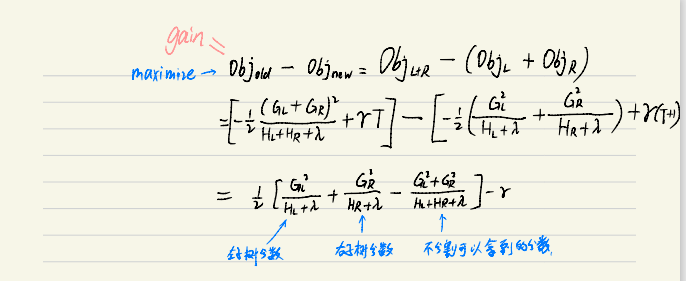 gain =
maximize → Obj_old - Obj_new = Obj_L+R - (Obj_L + Obj_R)
= [-1/2 (G_L+G_R)²/(H_L+H_R+λ) + γT] - [-1/2 (G_L²/(H_L+λ) + G_R²/(H_R+λ)) + γ(T+1)
= 1/2 [G_L²/(H_L+λ) + G_R²/(H_R+λ) - (G_L²+G_R²)/(H_L+H_R+λ)] - γ
左子树分数 右子树分数 不分割可以拿到的分数